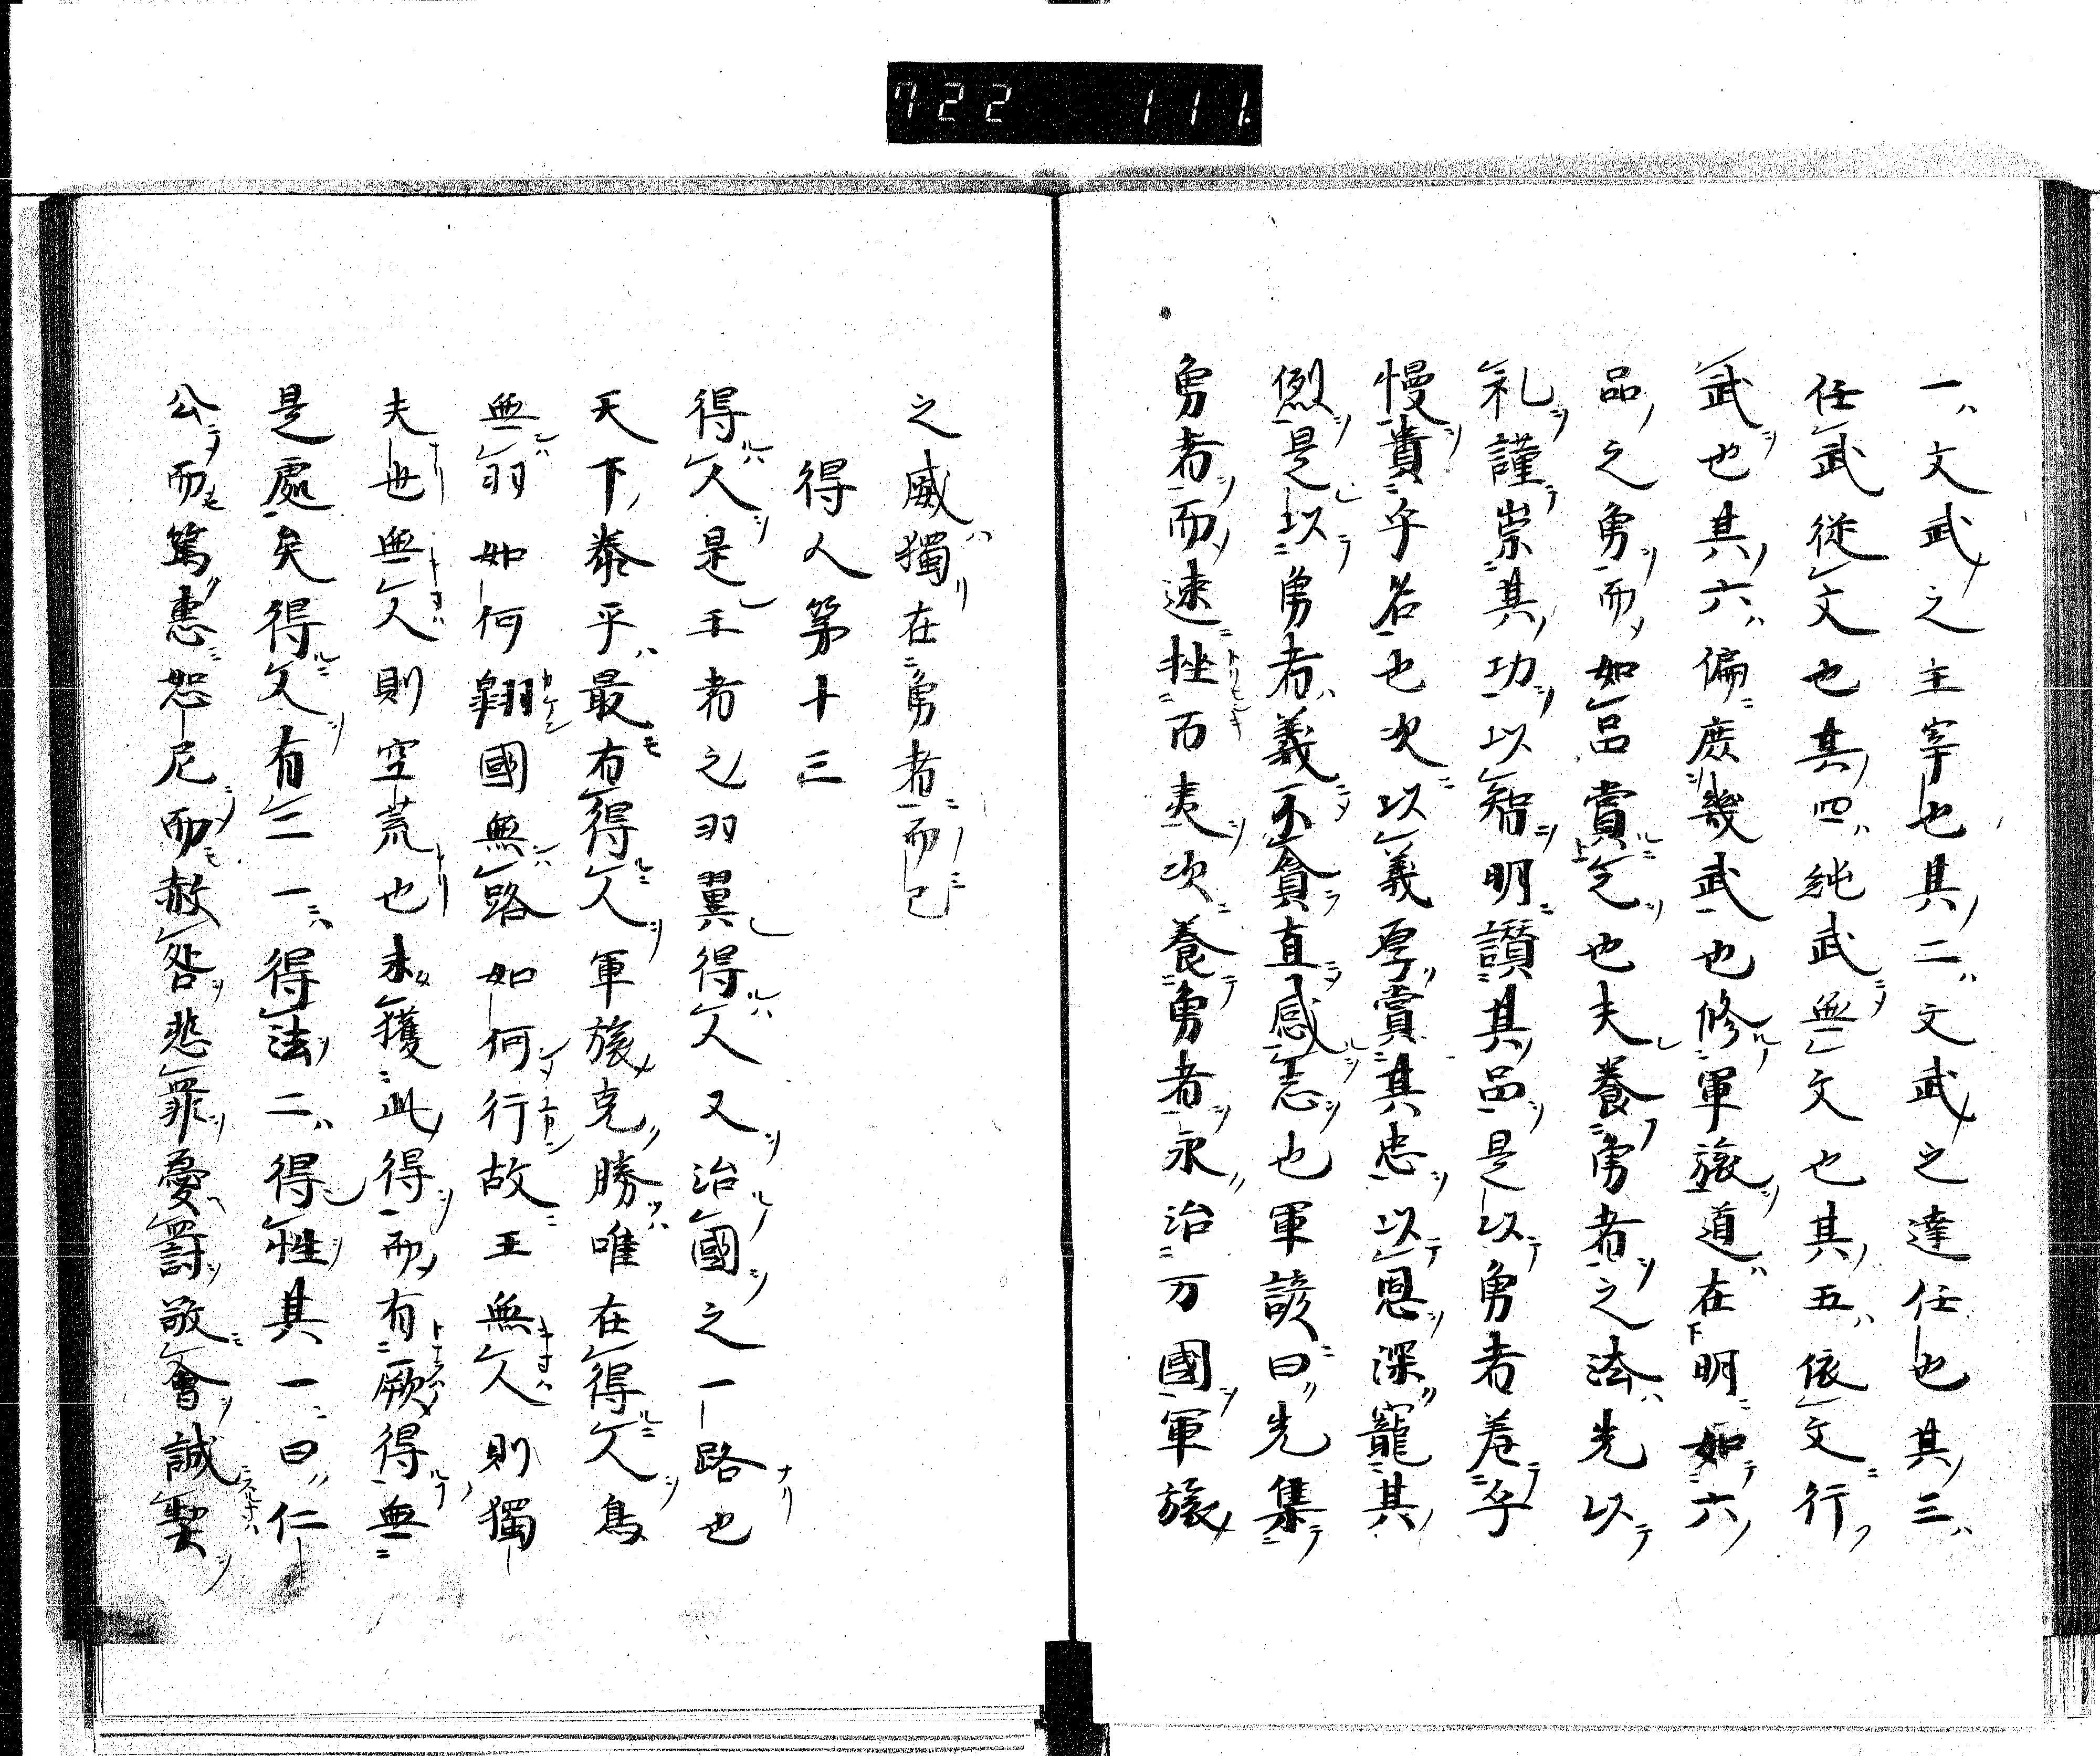 722 111
一文武之主宰也其二文武之達任也其三
任武從文也其四純武無文也其五依文行
武也其六偏庶幾武也修軍旅道在明如六
品之勇而如品賞之也夫養勇者之法先以
礼謹崇其功以智明讚其品是以勇者羞乎
慢貴乎名也次以義厚賞其忠以恩深寵其
烈是以勇者義不貪直感志也軍諺曰先集
勇者而速挫百夷次養勇者永治万國軍旅
之威獨在勇者而已
得人第十三
得人是王者之羽翼得人又治國之一路也
天下泰平最有得人軍旅克勝唯在得人鳥
無羽如何翱國無路如何行故王無人則獨
夫也世無人則空荒也未獲此得而有厥得無
是處矣得人有二一得法二得性其一曰仁
公而篤惠恕尼而赦咎悲罪憂罰敬會誠契